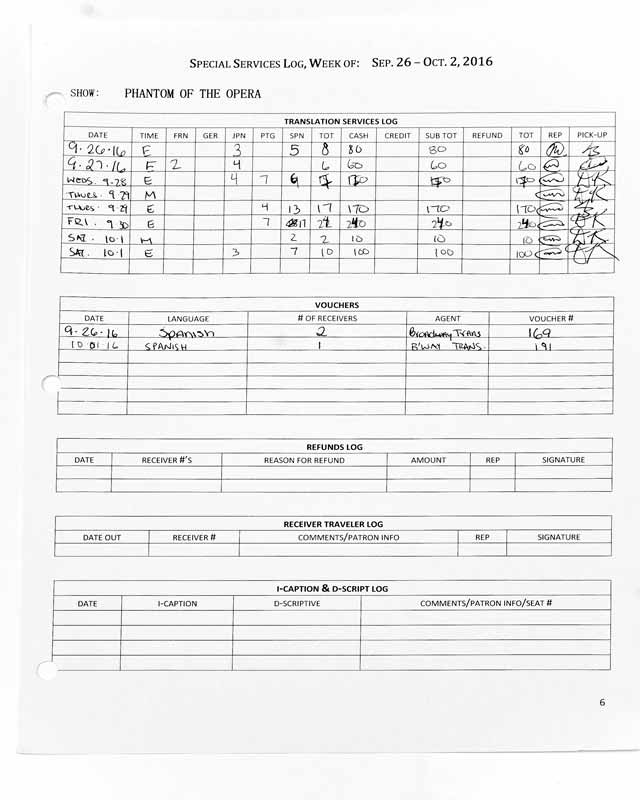 SPECIAL SERVICES LOG, WEEK OF: SEP. 26 – OCT. 2, 2016
SHOW: PHANTOM OF THE OPERA
TRANSLATION SERVICES LOG
DATE TIME FRN GER JPN PTG SPN TOT CASH CREDIT SUB TOT REFUND TOT REP PICK-UP
9.26.16 E 3 5 8 80 80 80
9.27.16 E 2 4 6 60 60 60
WEDS. 9-28 E 4 7
THURS. 9-29 M
THURS. 9-29 E 4 13 17 170 170 170
FRI. 9 30 E 7 17 24 240 240 240
SAT. 10.1 M 2 2 10 10 10
SAT. 10.1 E 3 7 10 100 100 100
VOUCHERS
DATE LANGUAGE # OF RECEIVERS AGENT VOUCHER #
9-26-16 Spanish 2 Broadway Trans 169
10 01 16 SPANISH 1 B'WAY TRANS. 191
REFUNDS LOG
DATE RECEIVER #'S REASON FOR REFUND AMOUNT REP SIGNATURE
RECEIVER TRAVELER LOG
DATE OUT RECEIVER # COMMENTS/PATRON INFO REP SIGNATURE
I-CAPTION & D-SCRIPT LOG
DATE I-CAPTION D-SCRIPTIVE COMMENTS/PATRON INFO/SEAT #
6